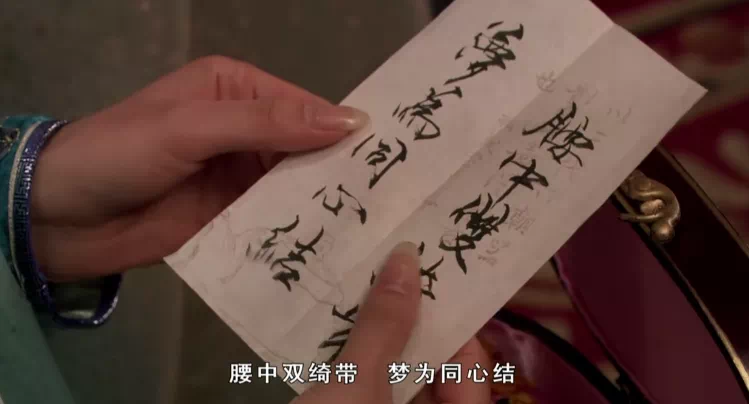 腰中雙
夢為同心结
腰中双绮带 梦为同心结